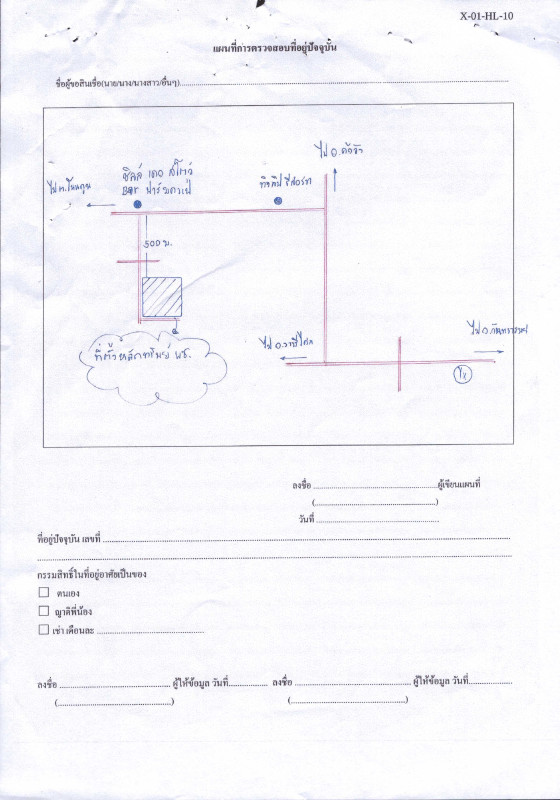 X-01-HL-10
แผนที่การตรวจสอบที่อยู่ปัจจุบัน
ชื่อผู้ขอสินเชื่อ(นาย/นาง/นางสาว/อื่นๆ)
ไป อ.
ชิลล์ เดอ สโตว์
Bar
500 ม.
ไป อ.
ไป อ.
ที่ตั้งหลักทรัพย์
ลงชื่อ ผู้เขียนแผนที่
(                    )
วันที่
ที่อยู่ปัจจุบัน เลขที่
กรรมสิทธิ์ในที่อยู่อาศัยเป็นของ
ตนเอง
ญาติพี่น้อง
เช่า เดือนละ
ลงชื่อ ผู้ให้ข้อมูล วันที่ ลงชื่อ ผู้ให้ข้อมูล วันที่
(                    ) (                    )